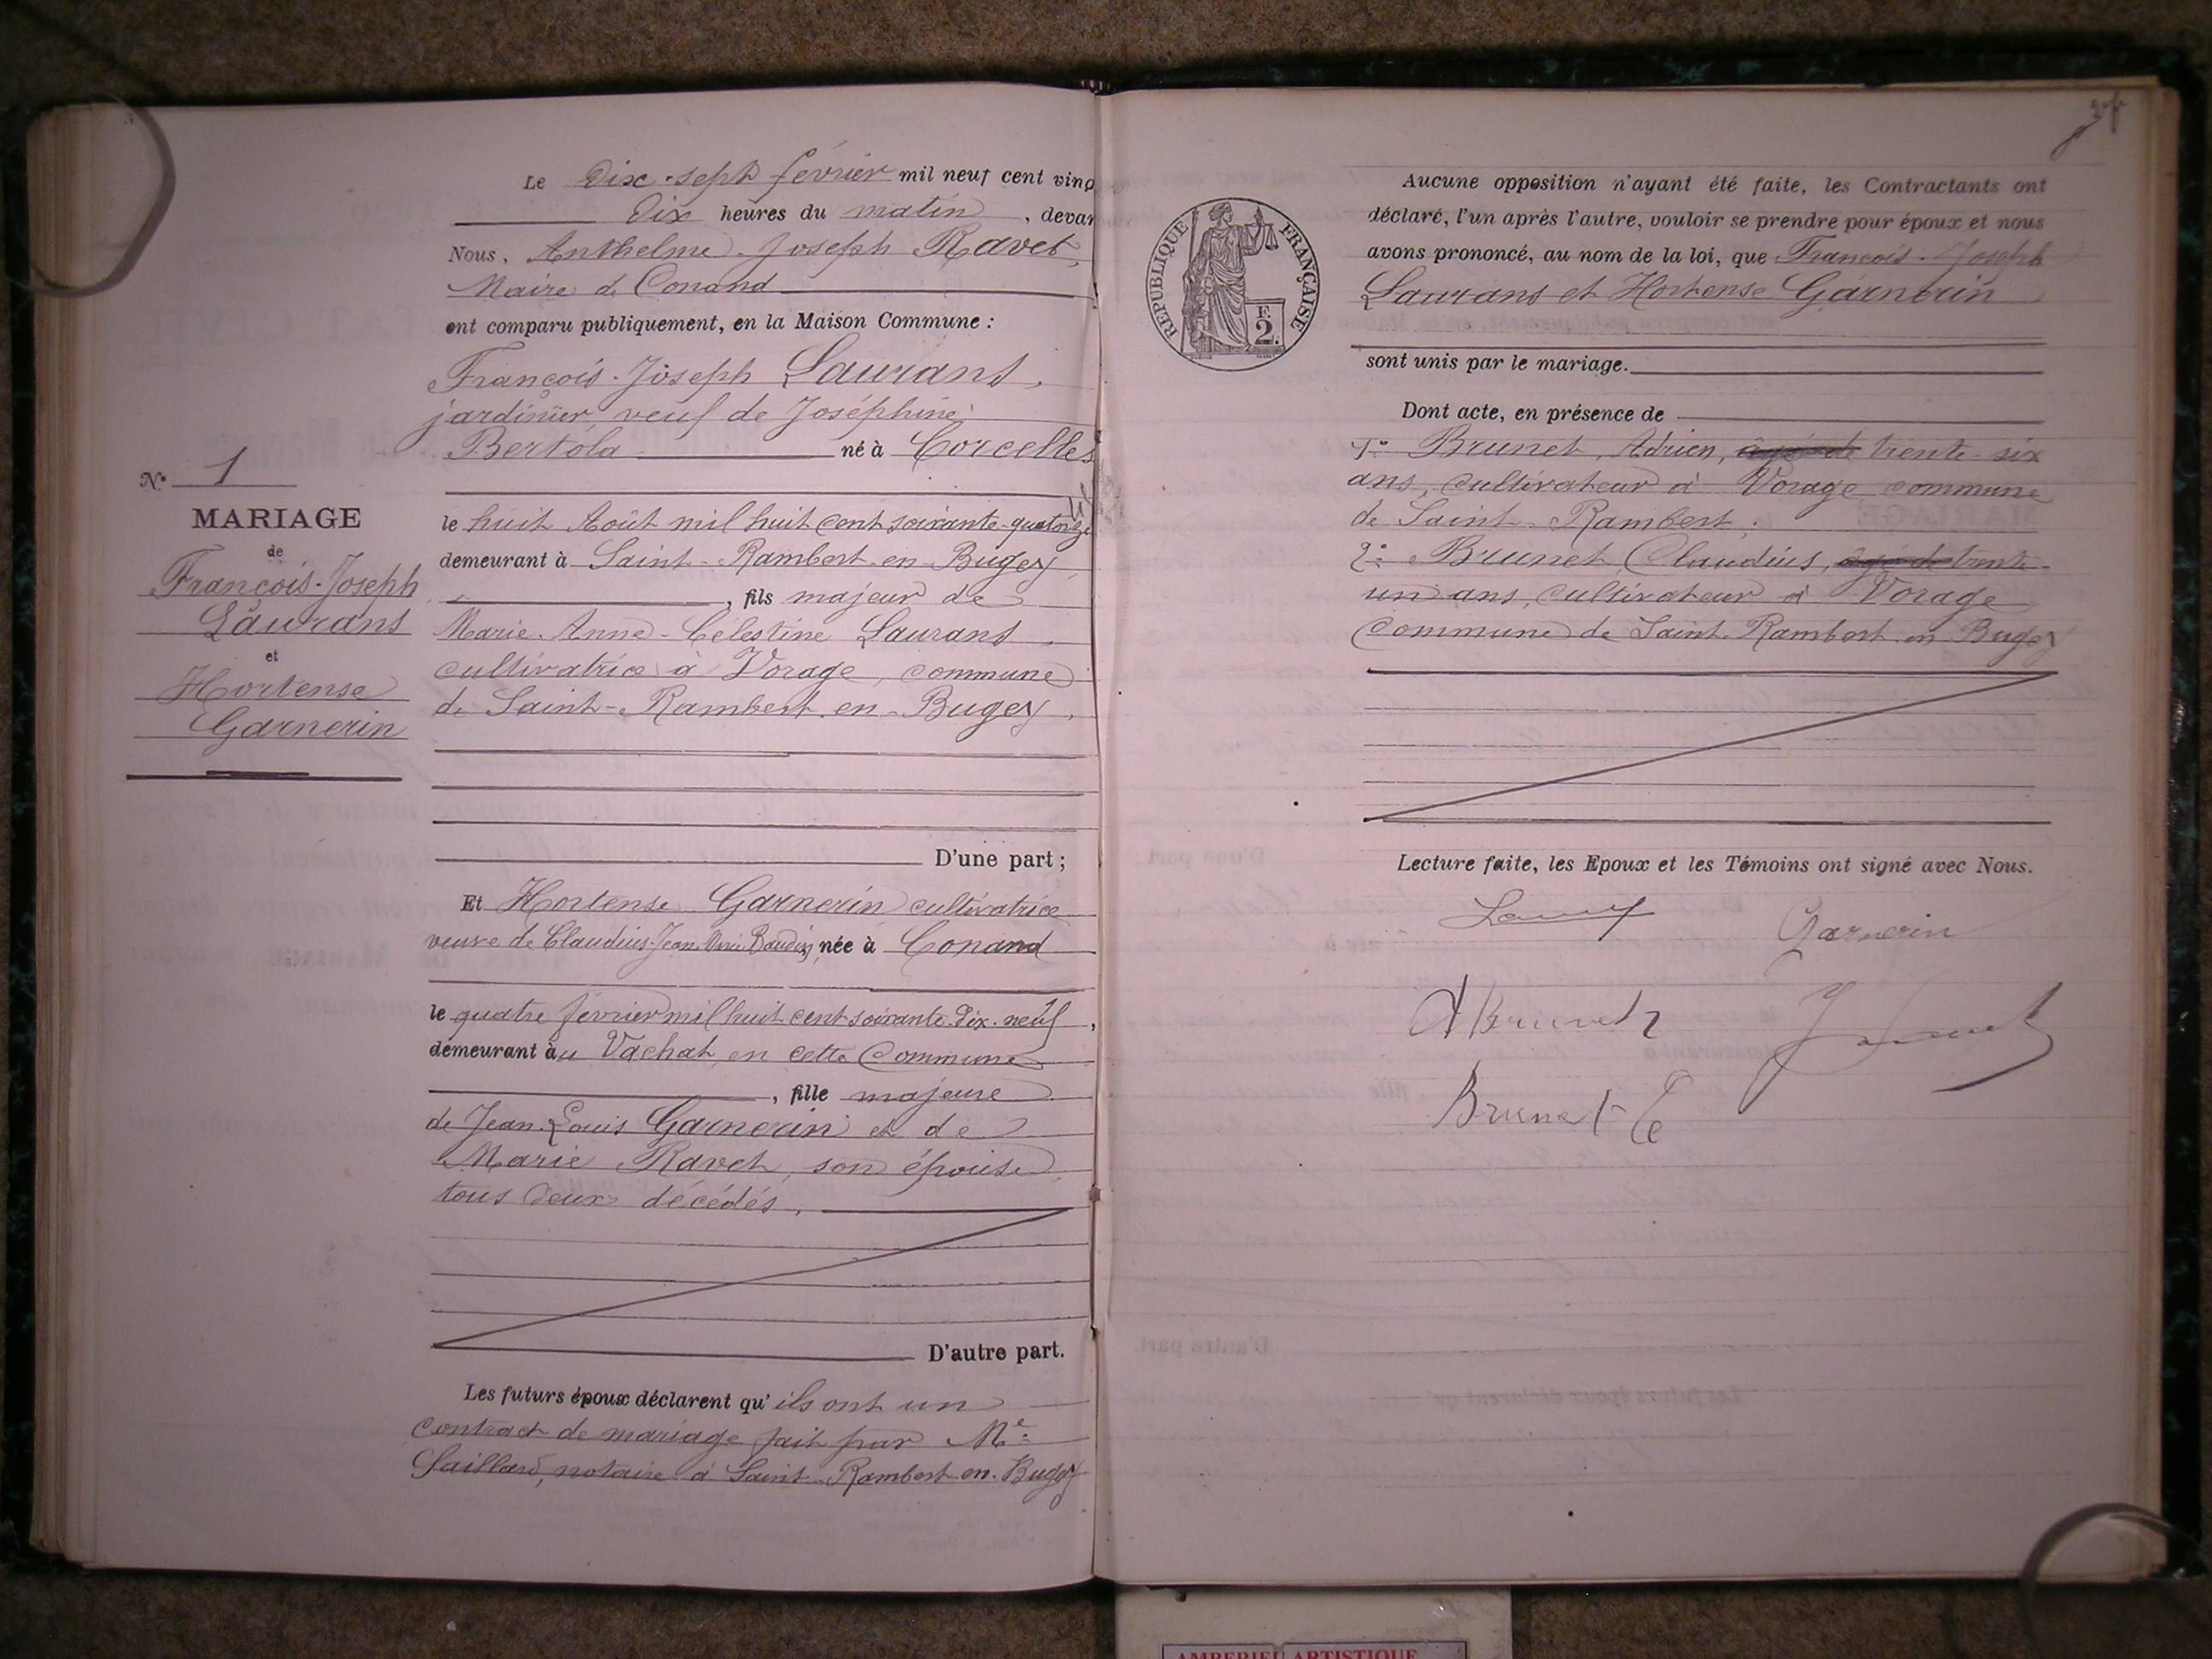 Le Dix-sept février mil neuf cent ving
Dix heures du matin, devan
Nous, Anthelme Joseph Ravet,
Maire de Conand
ont comparu publiquement, en la Maison Commune :
François-Joseph Laurans,
jardinier veuf de Joséphine
Bertola né à Corcelles
le huit Août mil huit cent soixante-quatorze
demeurant à Saint-Rambert-en-Bugey
, fils majeur de
Marie-Anne-Célestine Laurans,
cultivatrice à Vorage, commune
de Saint-Rambert-en-Bugey,
D'une part ;
N° 1
MARIAGE
de
François-Joseph
Laurans
et
Hortense
Garnerin
Et Hortense Garnerin cultivatrice
veuve de Claudius-Jean née à Conand
le quatre février mil huit cent soixante-dix-neuf,
demeurant àu Vachat, en cette Commune
, fille majeure
de Jean-Louis Garnerin et de
Marie Ravet, son épouse,
tous deux décédés,
D'autre part.
Les futurs époux déclarent qu'ils ont un
contract de mariage fait par Me
notaire à Saint-Rambert-en-Bugey
REPUBLIQUE FRANÇAISE
F.
2.
Aucune opposition n'ayant été faite, les Contractants ont
déclaré, l'un après l'autre, vouloir se prendre pour époux et nous
avons prononcé, au nom de la loi, que François-Joseph
Laurans et Hortense Garnerin
sont unis par le mariage.
Dont acte, en présence de
1° Brunet, Adrien, âgé de trente-six
ans, cultivateur à Vorage commune
de Saint-Rambert.
2° Brunet Claudius, âgé de trente-
un ans, cultivateur à Vorage
Commune de Saint-Rambert-en-Bugey
Lecture faite, les Epoux et les Témoins ont signé avec Nous.
Garnerin
A Brunet
Brunet C
AMBERIEU ARTISTIQUE